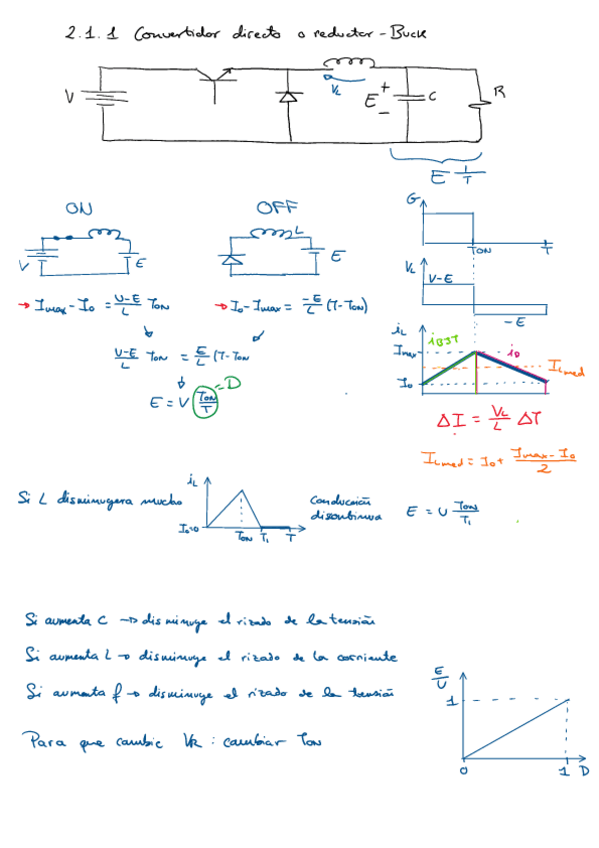 2.1.1 Convertidor directo o reductor - Buck
V
VL
E
+
-
C
R
E 1/T
ON
OFF
V
E
L
E
G
TON
T
→ Imax - Io = U-E/L TON
→ Io - Imax = -E/L (T-TON)
VL
V-E
-E
U-E/L TON = E/L (T-TON
E = V TON/T = D
iL
Imax
Io
iBJT
iD
ILmed
ΔI = VL/L ΔT
ILmed = Io + Imax - Io/2
Si L disminugera mucho
iL
Io=0
TON T1 T
Conducción
discontinua
E = U TON/T1
Si aumenta C → disminuye el rizado de la tensión
Si aumenta L → disminuye el rizado de la corriente
Si aumenta f → disminuye el rizado de la tensión
Para que cambie VR : cambiar TON
E/U
1
0
1 D